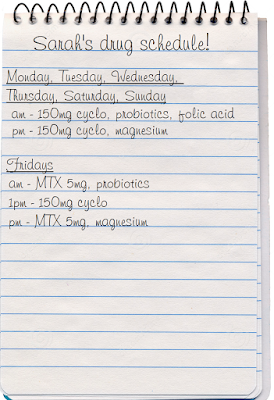 Sarah's drug schedule!
Monday, Tuesday, Wednesday,
Thursday, Saturday, Sunday
am - 150mg cyclo, probiotics, folic acid
pm - 150mg cyclo, magnesium
Fridays
am - MTX 5mg, probiotics
1pm - 150mg cyclo
pm - MTX 5mg, magnesium